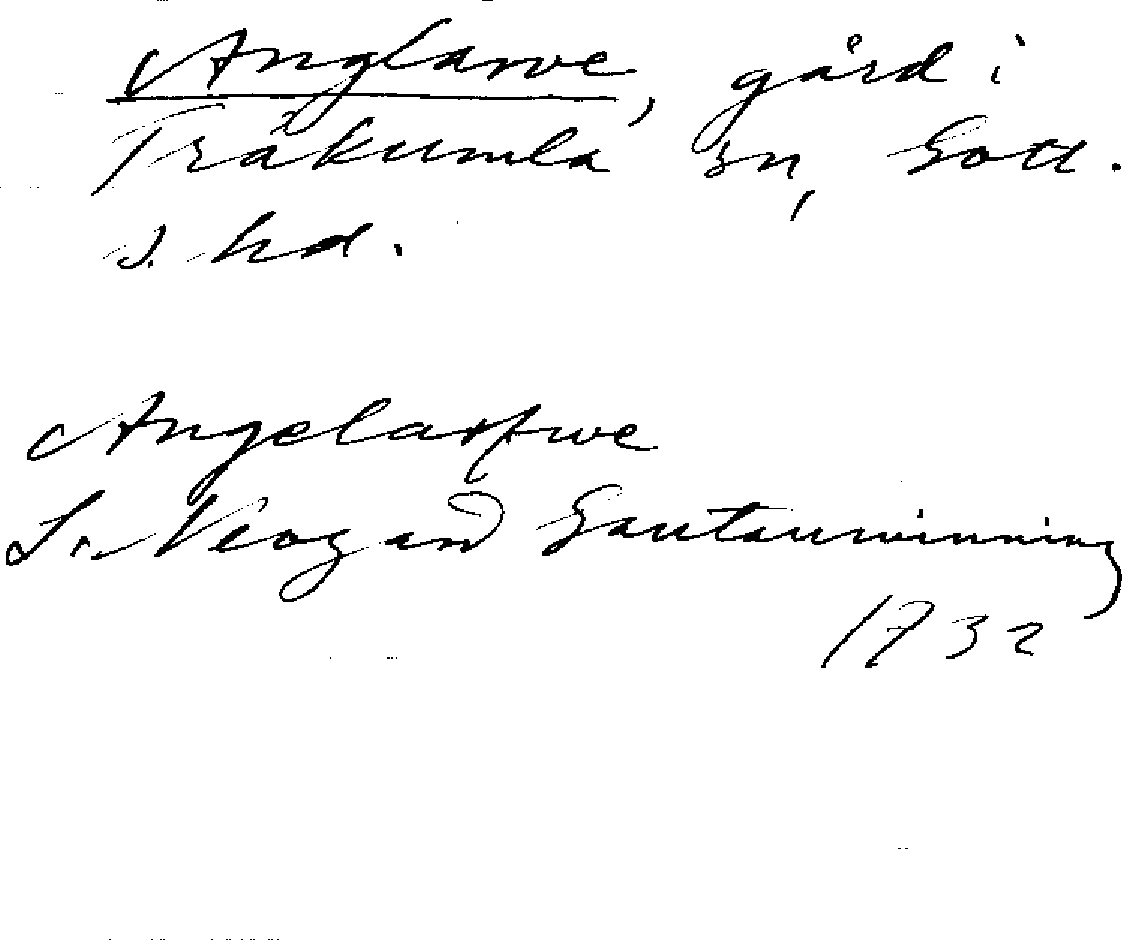 Anglarve, gård i
Träkumla sn, Gotl.
s. hd.
Angelarfwe
L. Neogard Gautauminning
1732